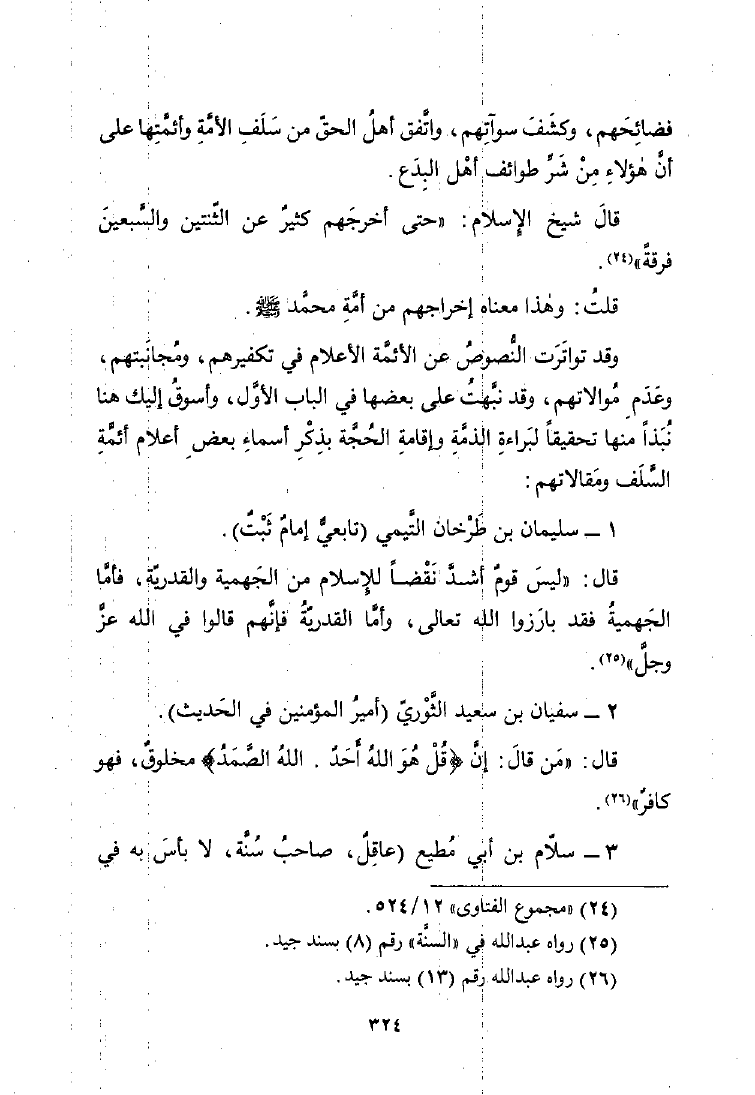 فضائِحَهم، وكشَفَ سوآتِهم، واتَّفق أهلُ الحقّ من سَلَفِ الأمَّةِ وأئمَّتِها على
أنَّ هٰؤلاءِ مِنْ شَرِّ طوائف أهْل البِدَع.
قالَ شيخ الإسلام: «حتى أخرجَهم كثيرٌ عن الثّنتين والسَّبعينَ
فرقةً»(٢٤).
قلتُ: وهٰذا معناه إخراجهم من أمَّةِ محمَّد ﷺ.
وقد تواتَرَت النُّصوصُ عن الأئمَّة الأعلام في تكفيرهم، ومُجانَبتهم،
وعَدَم مُوالاتهم، وقد نبَّهتُ على بعضها في الباب الأوَّل، وأسوقُ إليك هنا
نُبَذاً منها تحقيقاً لبَراءةِ الذمَّةِ وإقامةِ الحُجَّة بذِكْرِ أسماءِ بعض أعلام أئمَّةِ
السَّلَف ومَقالاتهم:
١ ـ سليمان بن طَرْخان التَّيمي (تابعيٌّ إمامٌ ثَبْتٌ).
قال: «ليسَ قومٌ أشدَّ نَقْضاً للإسلام من الجَهمية والقدريّة، فأمَّا
الجَهميةُ فقد بارَزوا الله تعالى، وأمَّا القدريّةُ فإنَّهم قالوا في الله عزَّ
وجلَّ»(٢٥).
٢ ـ سفيان بن سعيد الثَّوْريّ (أميرُ المؤمنين في الحَديث).
قال: «مَن قالَ: إنَّ ﴿قُلْ هُوَ اللهُ أَحَدٌ . اللهُ الصَّمَدُ﴾ مخلوقٌ، فهو
كافرٌ»(٢٦).
٣ ـ سلّام بن أبي مُطيع (عاقِلٌ، صاحبُ سُنَّة، لا بأسَ به في
(٢٤) «مجموع الفتاوى» ١٢/٥٢٤.
(٢٥) رواه عبدالله في «السنَّة» رقم (٨) بسند جيد.
(٢٦) رواه عبدالله رقم (١٣) بسند جيد.
٣٢٤